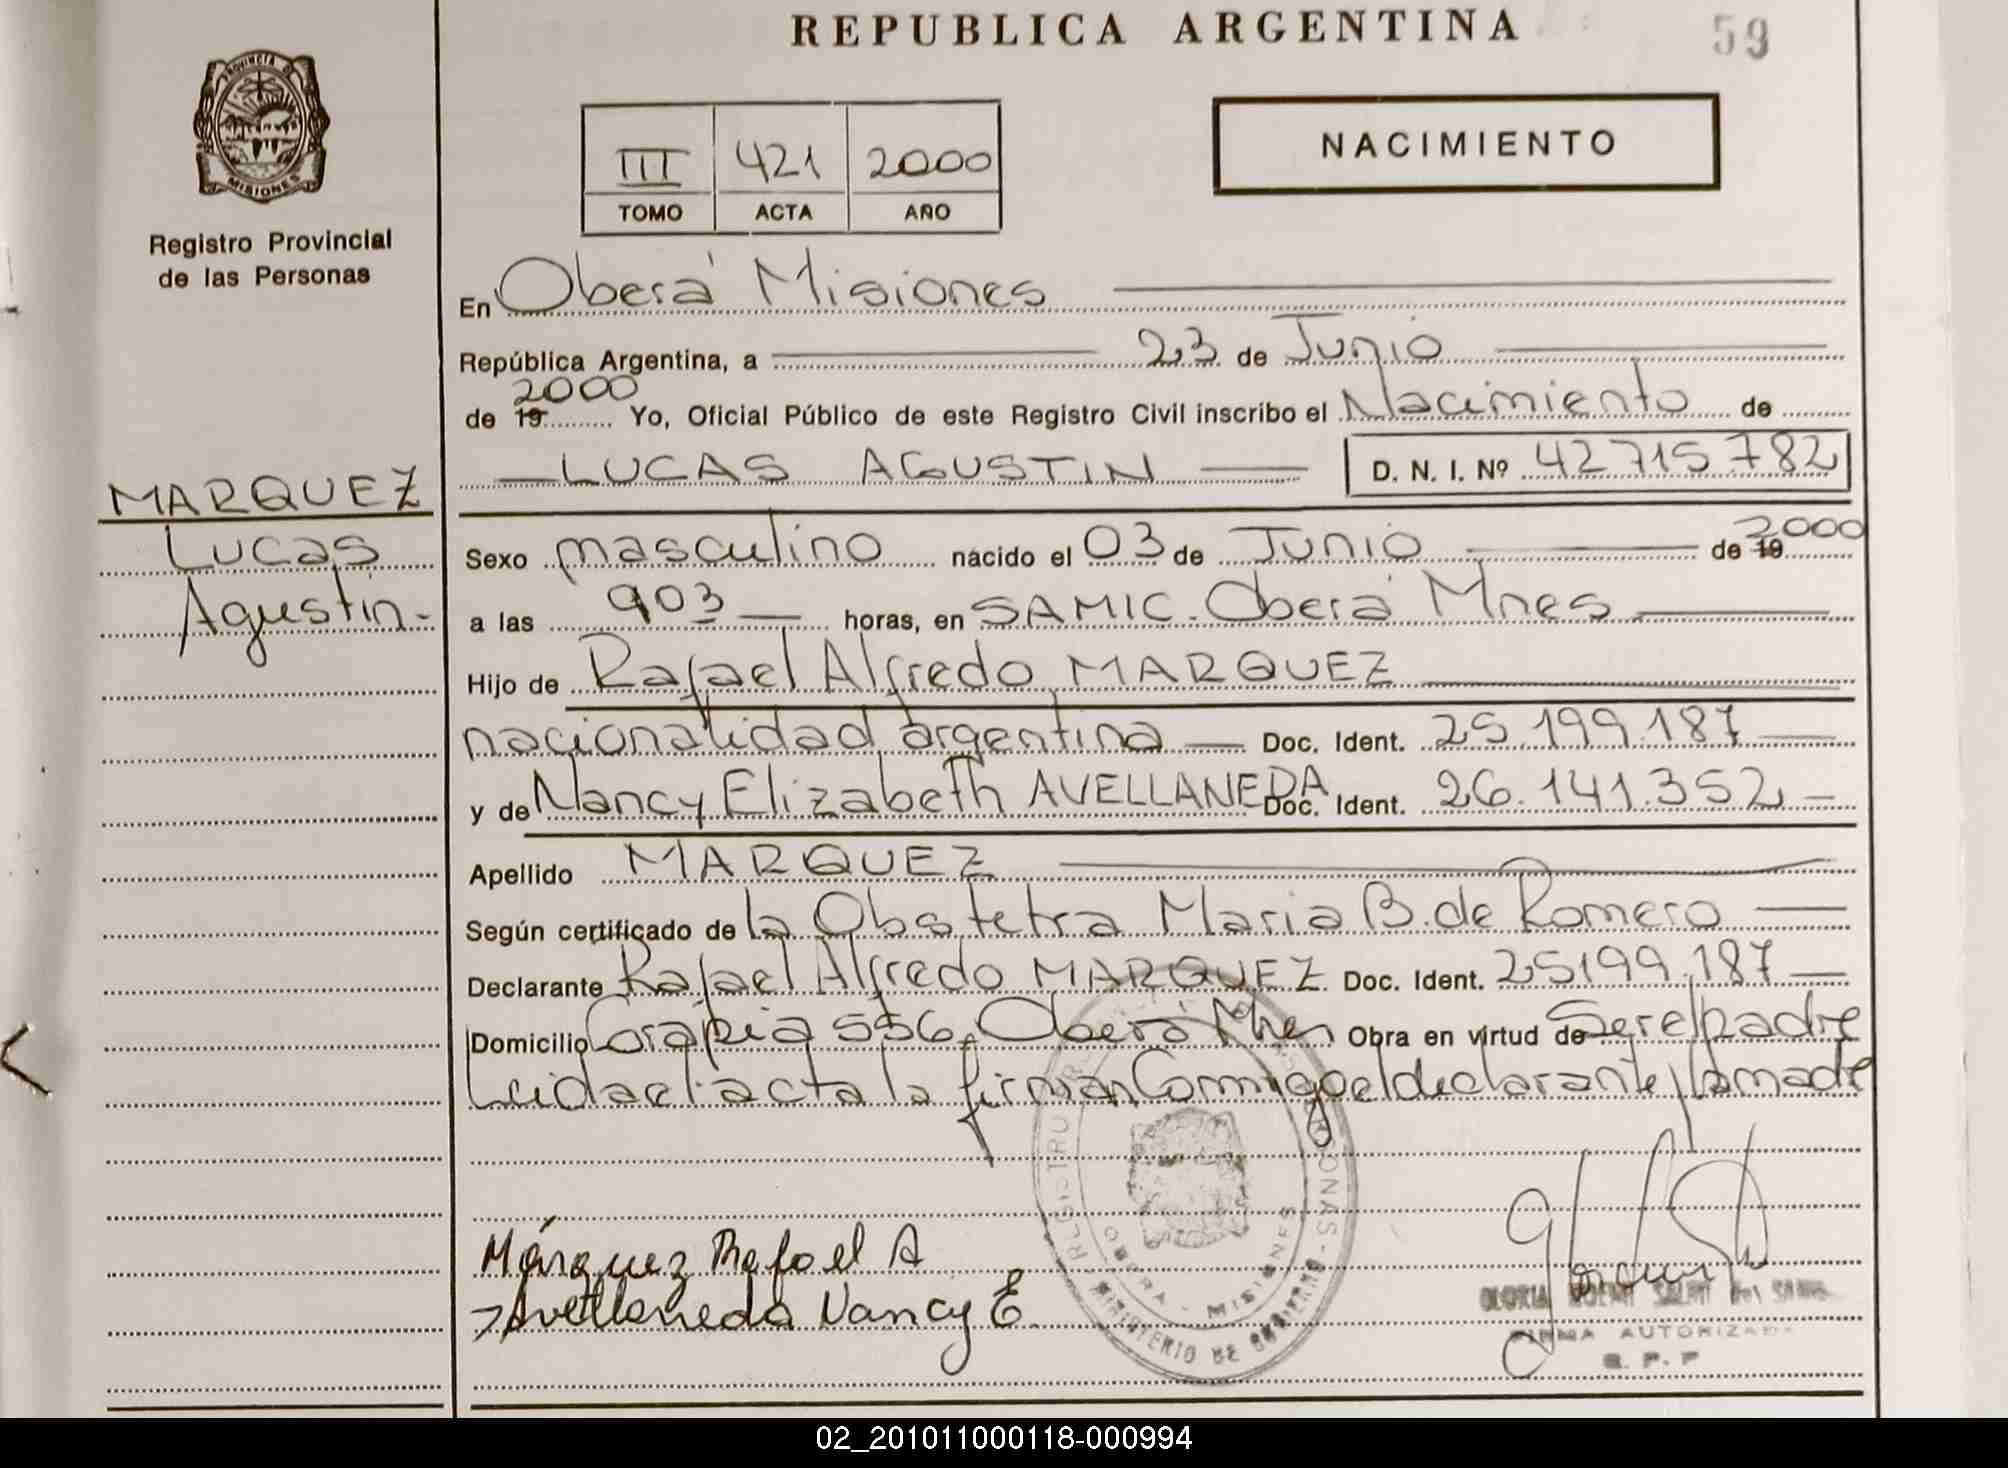 REPUBLICA ARGENTINA
59
PROVINCIA DE
MISIONES
Registro Provincial
de las Personas
III 421 2000
TOMO ACTA AÑO
NACIMIENTO
En Oberá Misiones
República Argentina, a 23 de Junio
de 19 2000 Yo, Oficial Público de este Registro Civil inscribo el Nacimiento de
LUCAS AGUSTIN D. N. I. Nº 42715782
MARQUEZ
Lucas
Agustin.-
Sexo masculino nacido el 03 de Junio de 19 2000
a las 903 horas, en SAMIC. Oberá Mnes
Hijo de Rafael Alfredo MARQUEZ
nacionalidad argentina Doc. Ident. 25.199.187
y de Nancy Elizabeth AVELLANEDA Doc. Ident. 26.141.352
Apellido MARQUEZ
Según certificado de la Obstetra Maria B. de Romero
Declarante Rafael Alfredo MARQUEZ. Doc. Ident. 25199.187
Domicilio 556, Oberá Mnes Obra en virtud de Ser el padre
Leida el acta la firman Conmigo el declarante y la madre
Márquez Rafael A
Avellaneda Nancy E.
OBERA - MISIONES
MINISTERIO DE GOBIERNO
GLORIA
FIRMA AUTORIZADA
R. P. P
02_201011000118-000994